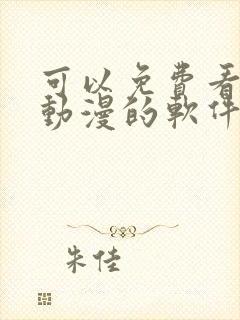 可以免費看
動漫的軟件
朱佳